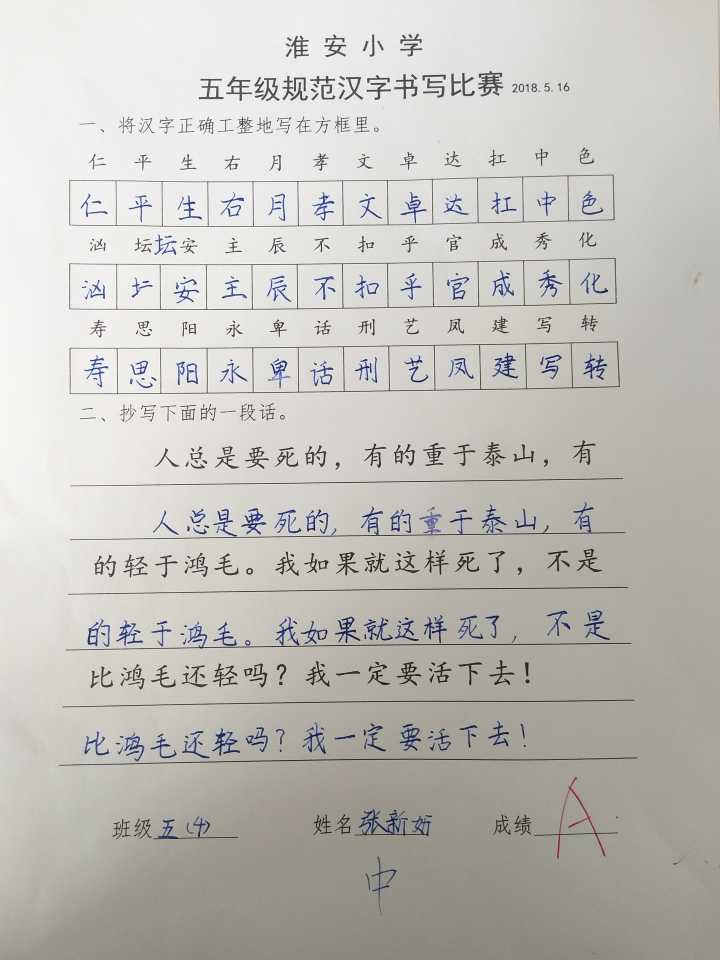 淮安小学
五年级规范汉字书写比赛 2018.5.16
一、将汉字正确工整地写在方框里。
仁 平 生 右 月 孝 文 卓 达 扛 中 色
仁 平 生 右 月 孝 文 卓 达 扛 中 色
汹 坛 坛 安 主 辰 不 扣 乎 官 成 秀 化
汹 安 主 辰 不 扣 乎 官 成 秀 化
寿 思 阳 永 卑 话 刑 艺 凤 建 写 转
寿 思 阳 永 卑 话 刑 艺 凤 建 写 转
二、抄写下面的一段话。
人总是要死的，有的重于泰山，有
人总是要死的，有的重于泰山，有
的轻于鸿毛。我如果就这样死了，不是
的轻于鸿毛。我如果就这样死了，不是
比鸿毛还轻吗？我一定要活下去！
比鸿毛还轻吗？我一定要活下去！
班级 五（4） 姓名 张新妍 成绩 A
中